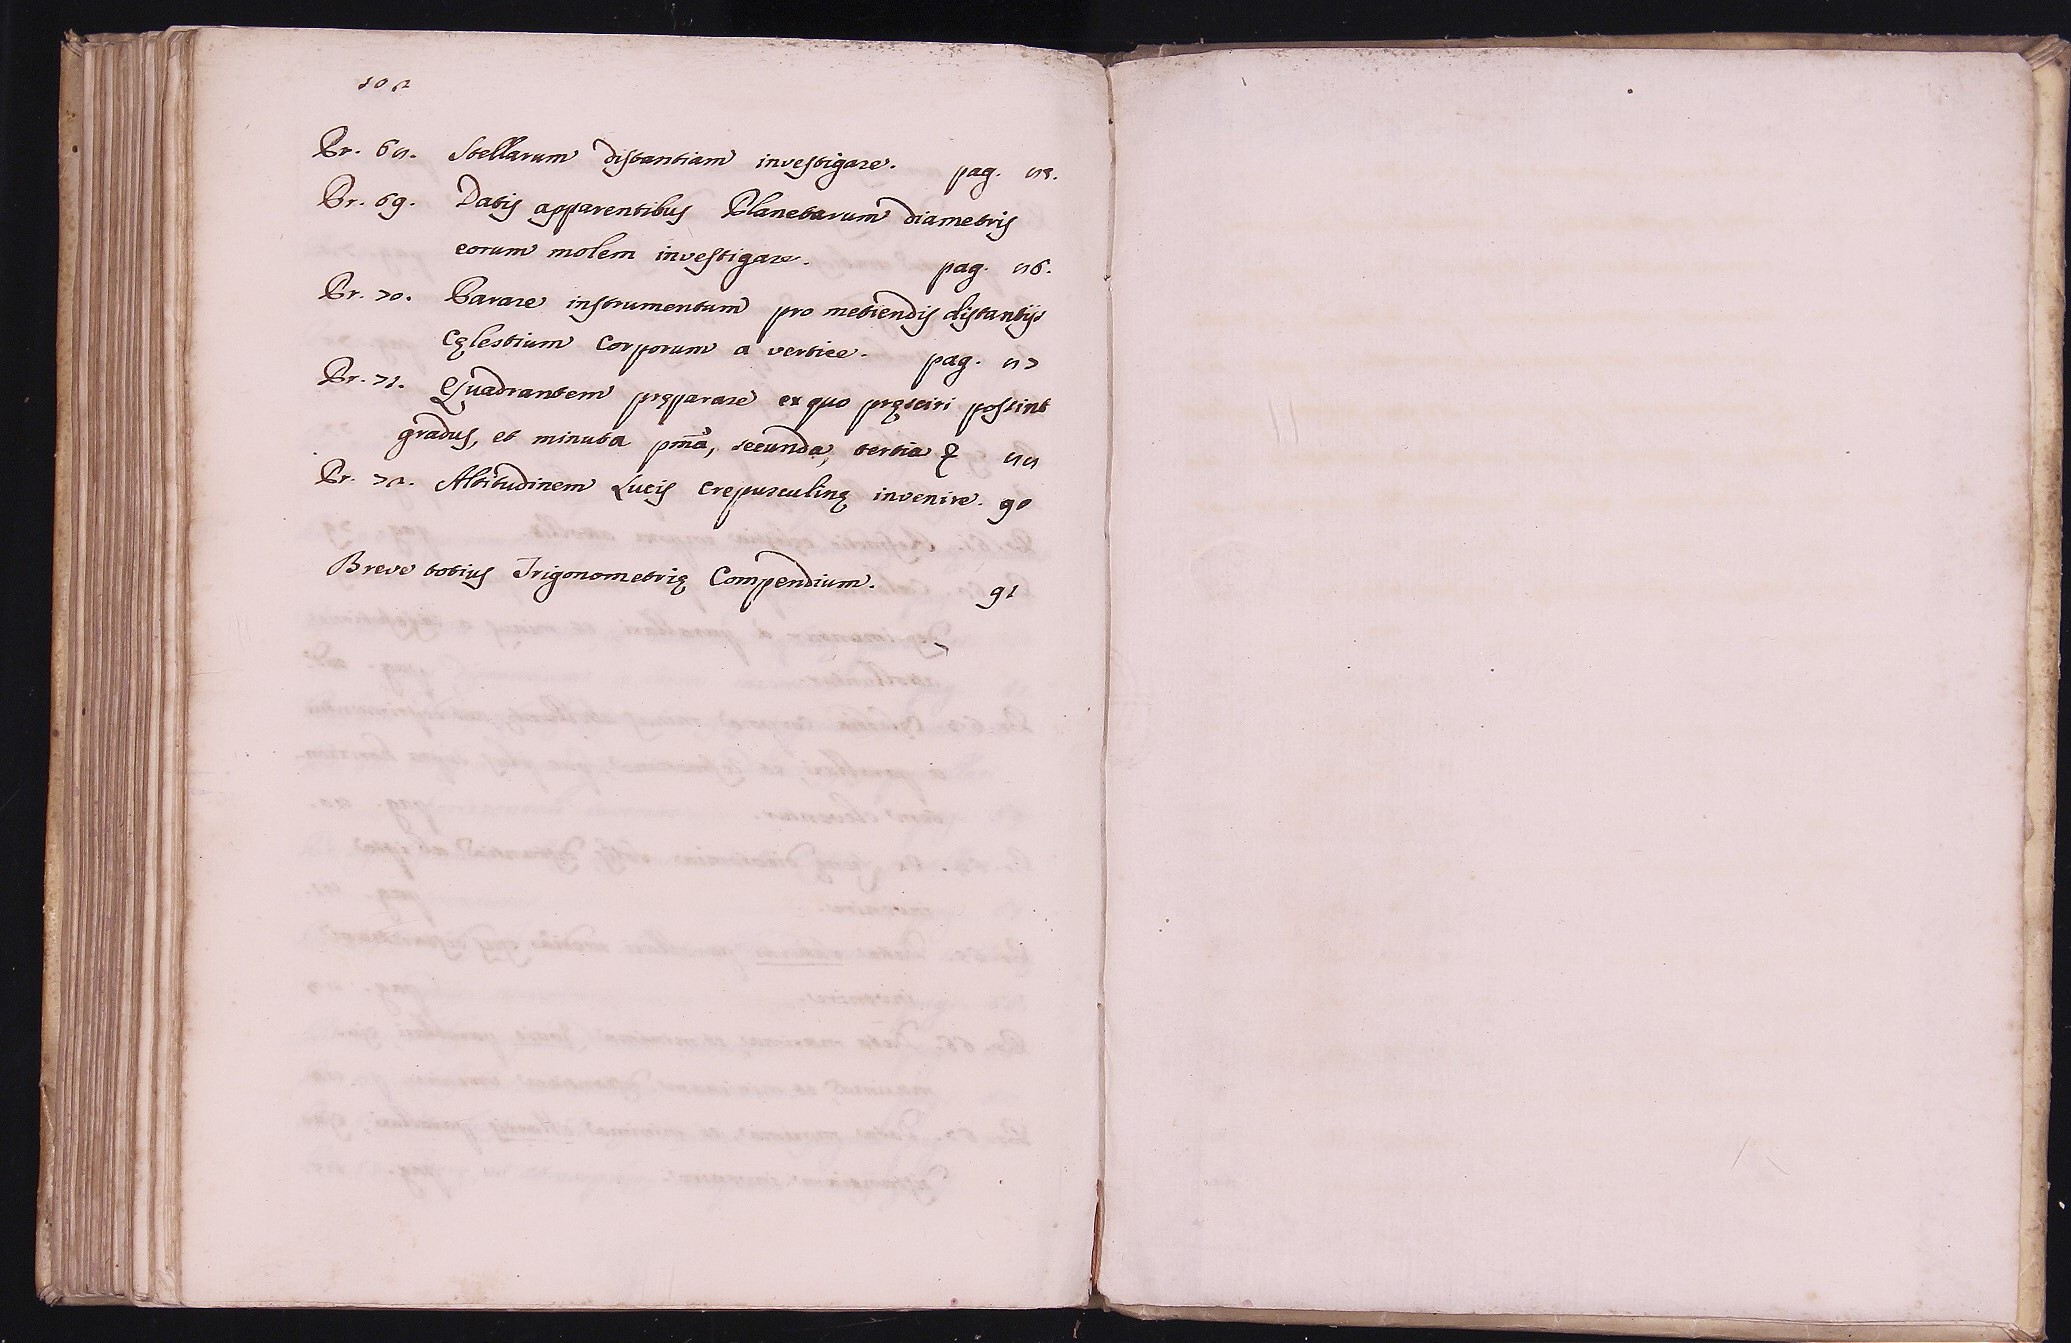 102
Pr. 68. Stellarum distantiam investigare. pag. 85.
Pr. 69. Datis apparentibus Planetarum diametris
eorum molem investigare. pag. 86.
Pr. 70. Parare instrumentum pro metiendis distantijs
Cęlestium Corporum a vertice. pag. 87
Pr. 71. Quadrantem pręparare ex quo pręsciri possint
gradus, et minuta pm̃a, secunda, tertia & 88
Pr. 72. Altitudinem Lucis Crepusculinę invenire. 90
Breve totius Trigonometrię Compendium. 91